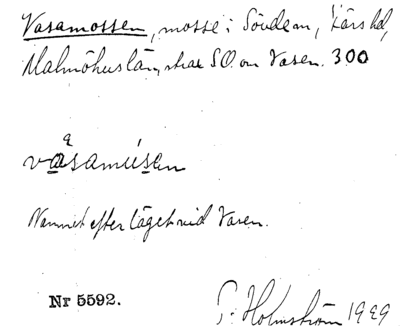 Vasamossen, mosse i Södern, Färs hd,
Malmöhus län, strax SO. om Vasen. 300
Namnet efter läget vid Vasen.
Nr 5592.
P: Holmström 1929